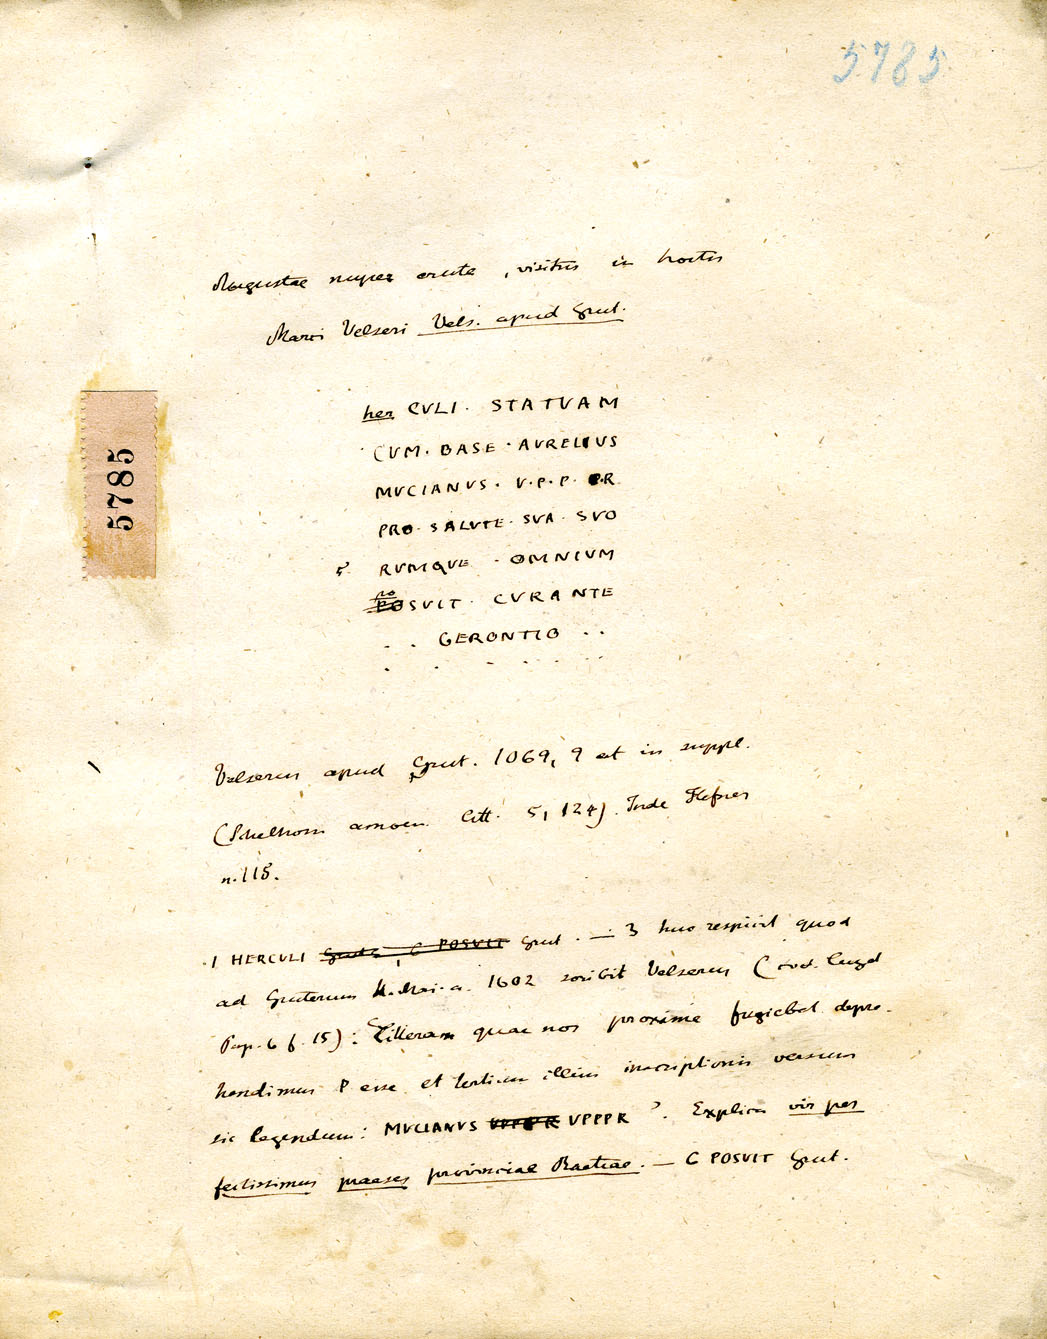 5785
Augustae nuper erute, visitus in hortis
Marci Velseri Vels. apud Grut.
5785
her CVLI · STATVAM
CVM · BASE · AVRELIUS
MVCIANVS · V · P · P · PR
PRO · SALVTE · SVA · SVO
5 RVMQVE · OMNIVM
PO
POSVIT · CVRANTE
. . GERONTIO . .
. . . . . .
Velserus apud Grut. 1069, 9 et in suppl.
(Schelhorn amoen. litt. 5, 124). Inde Hefner
n. 115.
1 HERCULI C POSVIT Grut. — 3 huc respicit quod
ad Gruterum Mai. a. 1602 scribit Velserus (cod. lugd
Pap. 6 f. 15): Litteram quae nos proxime fugiebat depre-
hendimus P esse et tertium illius inscriptionis versum
sic legendum: MVCIANVS VPPPR VPPPR'. Explica vir per
fectissimus praeses provinciae Raetiae. — 6 POSVIT Grut.